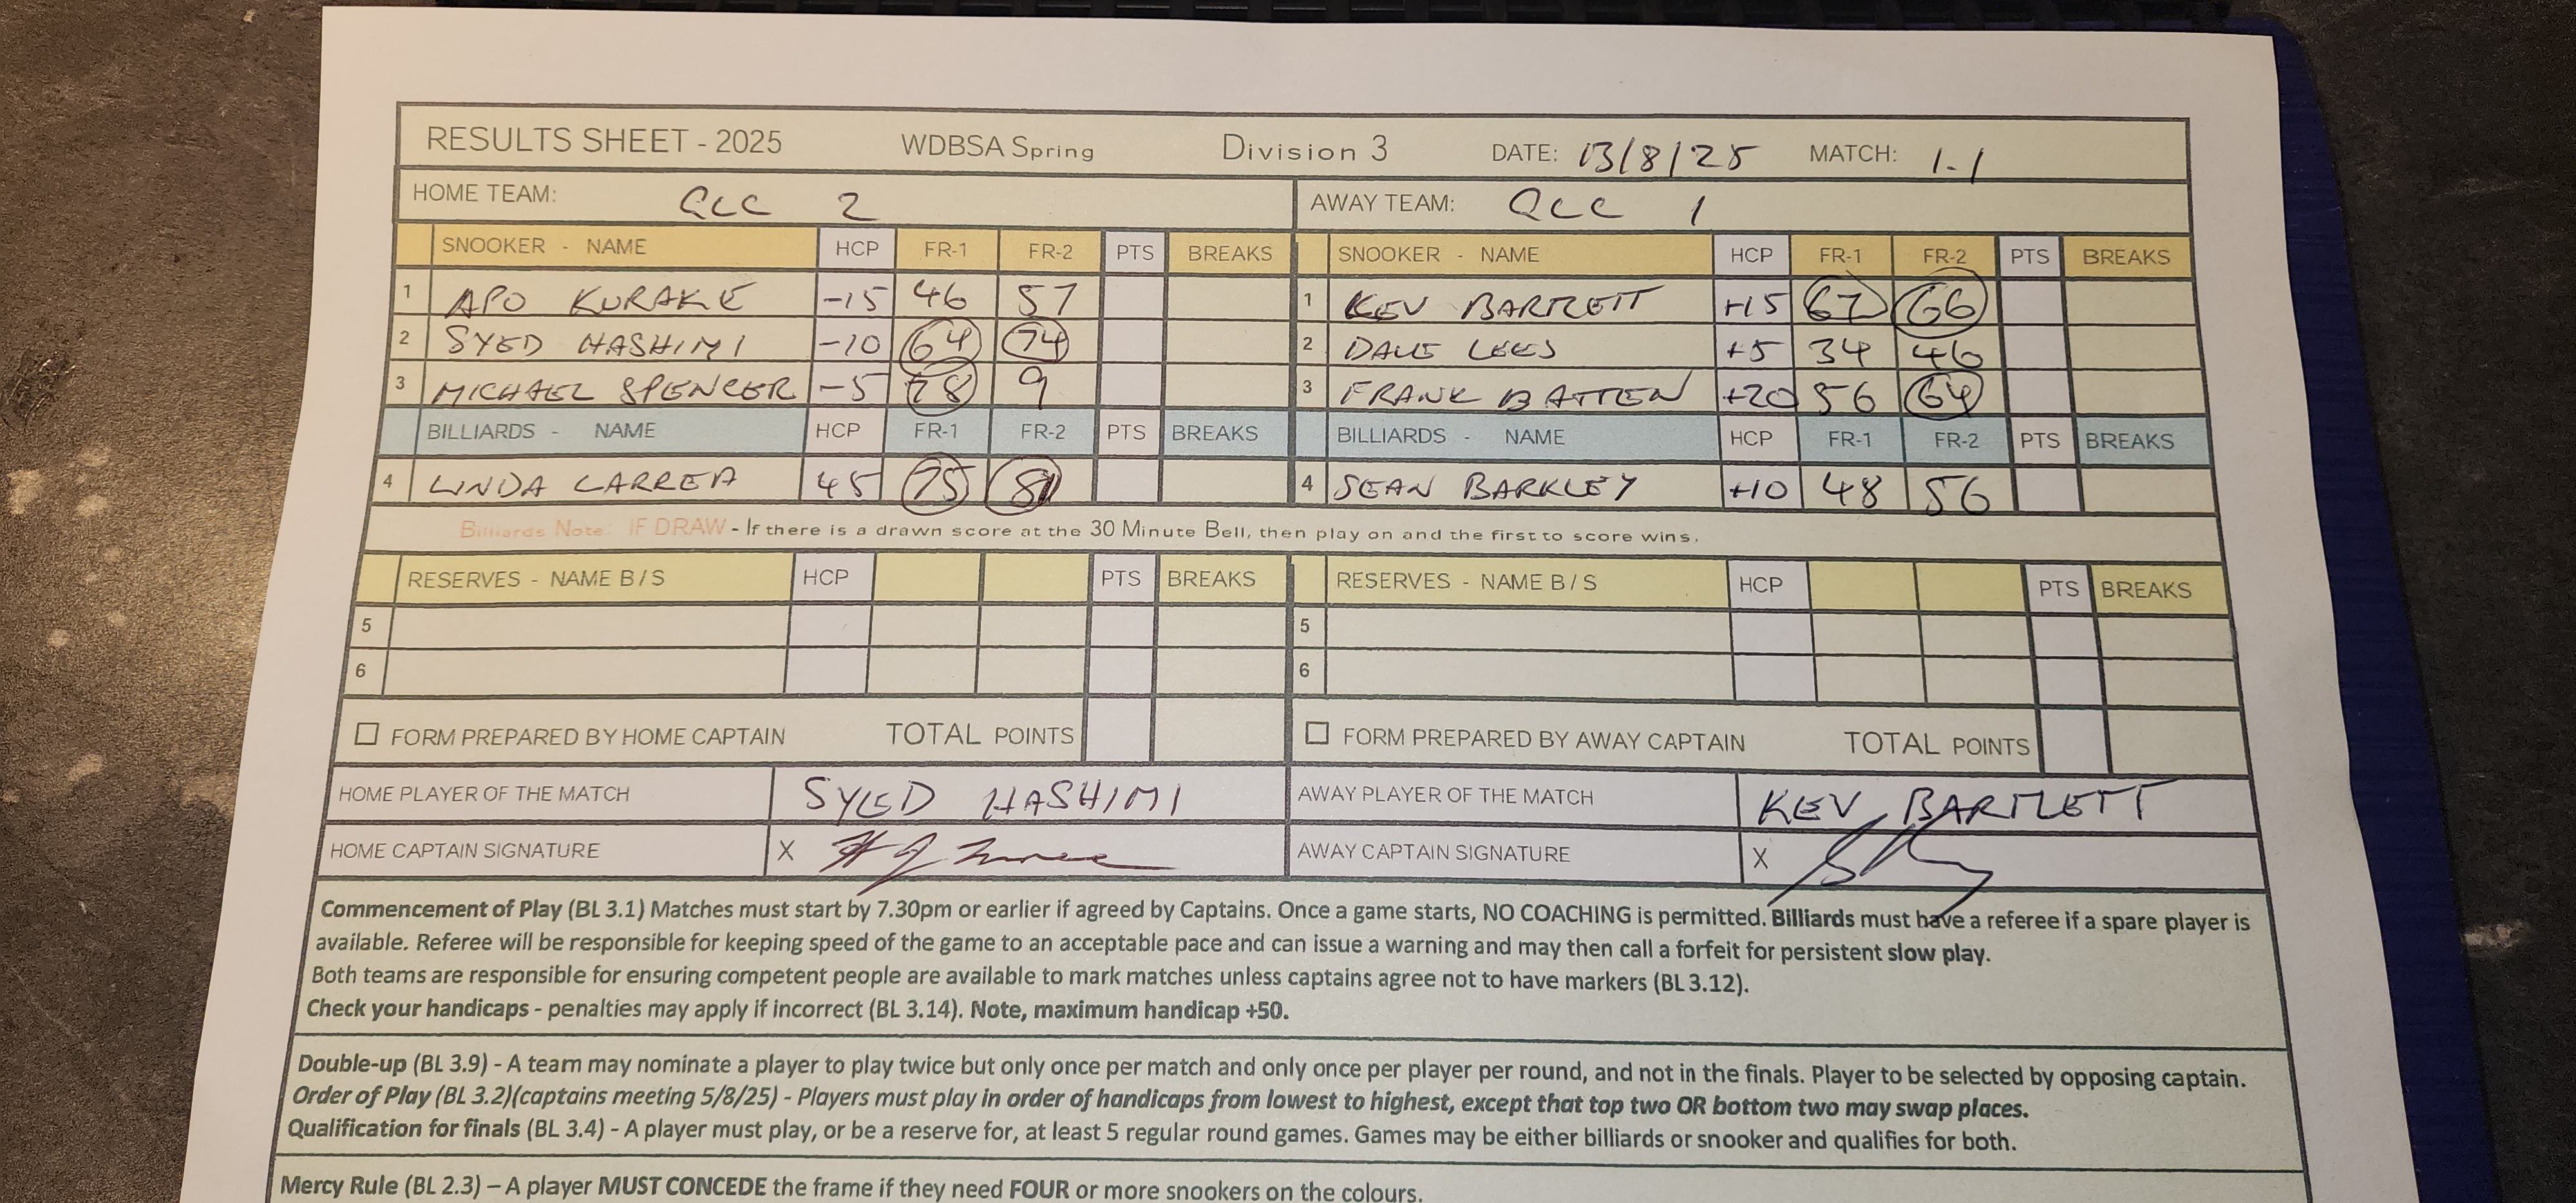 RESULTS SHEET - 2025 WDBSA Spring Division 3 DATE: 13/8/25 MATCH: 1.1
HOME TEAM: QCC 2 AWAY TEAM: QCC 1
SNOOKER - NAME HCP FR-1 FR-2 PTS BREAKS SNOOKER - NAME HCP FR-1 FR-2 PTS BREAKS
1 APO KURAKE -15 46 57 1 KEV BARTLETT +15 67 66
2 SYED HASHIMI -10 64 74 2 DALE LEES +5 34 46
3 MICHAEL SPENCER -5 78 9 3 FRANK BATTEN +20 56 64
BILLIARDS - NAME HCP FR-1 FR-2 PTS BREAKS BILLIARDS - NAME HCP FR-1 FR-2 PTS BREAKS
4 LINDA CARREA 45 75 81 4 SEAN BARKLEY +10 48 56
Billiards Note: IF DRAW - If there is a drawn score at the 30 Minute Bell, then play on and the first to score wins.
RESERVES - NAME B / S HCP PTS BREAKS RESERVES - NAME B / S HCP PTS BREAKS
5 5
6 6
FORM PREPARED BY HOME CAPTAIN TOTAL POINTS FORM PREPARED BY AWAY CAPTAIN TOTAL POINTS
HOME PLAYER OF THE MATCH SYED HASHIMI AWAY PLAYER OF THE MATCH KEV BARTLETT
HOME CAPTAIN SIGNATURE X AWAY CAPTAIN SIGNATURE X
Commencement of Play (BL 3.1) Matches must start by 7.30pm or earlier if agreed by Captains. Once a game starts, NO COACHING is permitted. Billiards must have a referee if a spare player is
available. Referee will be responsible for keeping speed of the game to an acceptable pace and can issue a warning and may then call a forfeit for persistent slow play.
Both teams are responsible for ensuring competent people are available to mark matches unless captains agree not to have markers (BL 3.12).
Check your handicaps - penalties may apply if incorrect (BL 3.14). Note, maximum handicap +50.
Double-up (BL 3.9) - A team may nominate a player to play twice but only once per match and only once per player per round, and not in the finals. Player to be selected by opposing captain.
Order of Play (BL 3.2)(captains meeting 5/8/25) - Players must play in order of handicaps from lowest to highest, except that top two OR bottom two may swap places.
Qualification for finals (BL 3.4) - A player must play, or be a reserve for, at least 5 regular round games. Games may be either billiards or snooker and qualifies for both.
Mercy Rule (BL 2.3) – A player MUST CONCEDE the frame if they need FOUR or more snookers on the colours.